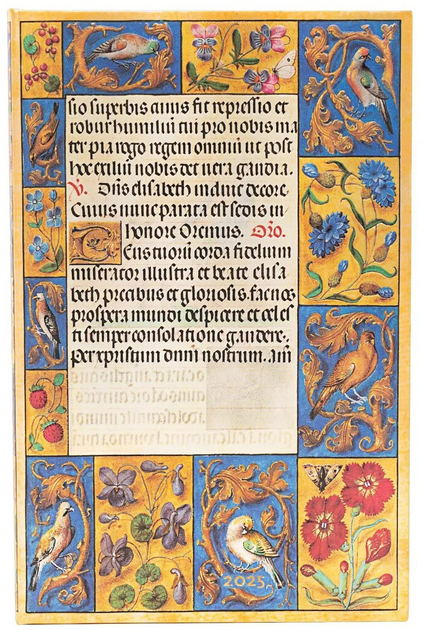 sio superbis cuius fit repressio et
robur humiliū tui pro nobis ma
ter pia rogo regem omniū ut post
hoc exiliū nobis det uera gaudia.
V. Dn̄s elisabeth induit decore.
Cuius nunc parata est sedis in
honore Oremus. Oro.
DEus tuorū corda fidelium
miserator illustra et beate elisa
beth precibus et gloriosis. fac nos
prospera mundi despicere et celes
ti semper consolatione gaudere.
Per xpristum dnm nostrum. am
2025